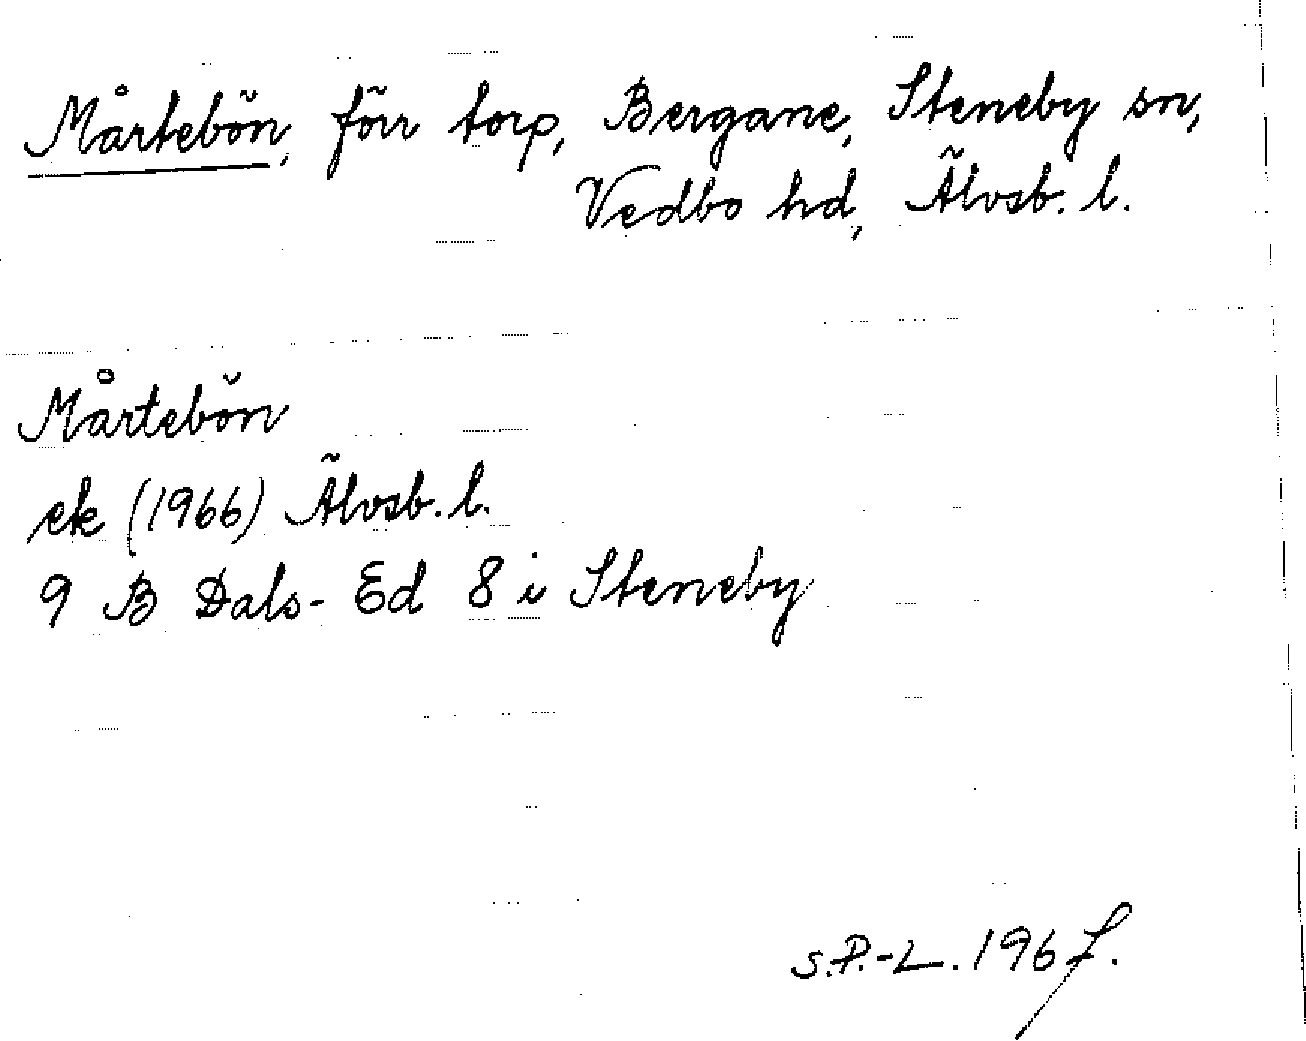 Mårtebön, förr torp, Bergane, Steneby sn,
Vedbo hd, Älvsb. l.
Mårtebön
ek (1966) Älvsb. l.
9 B Dals-Ed 8 i Steneby
S.P.-L. 1967.